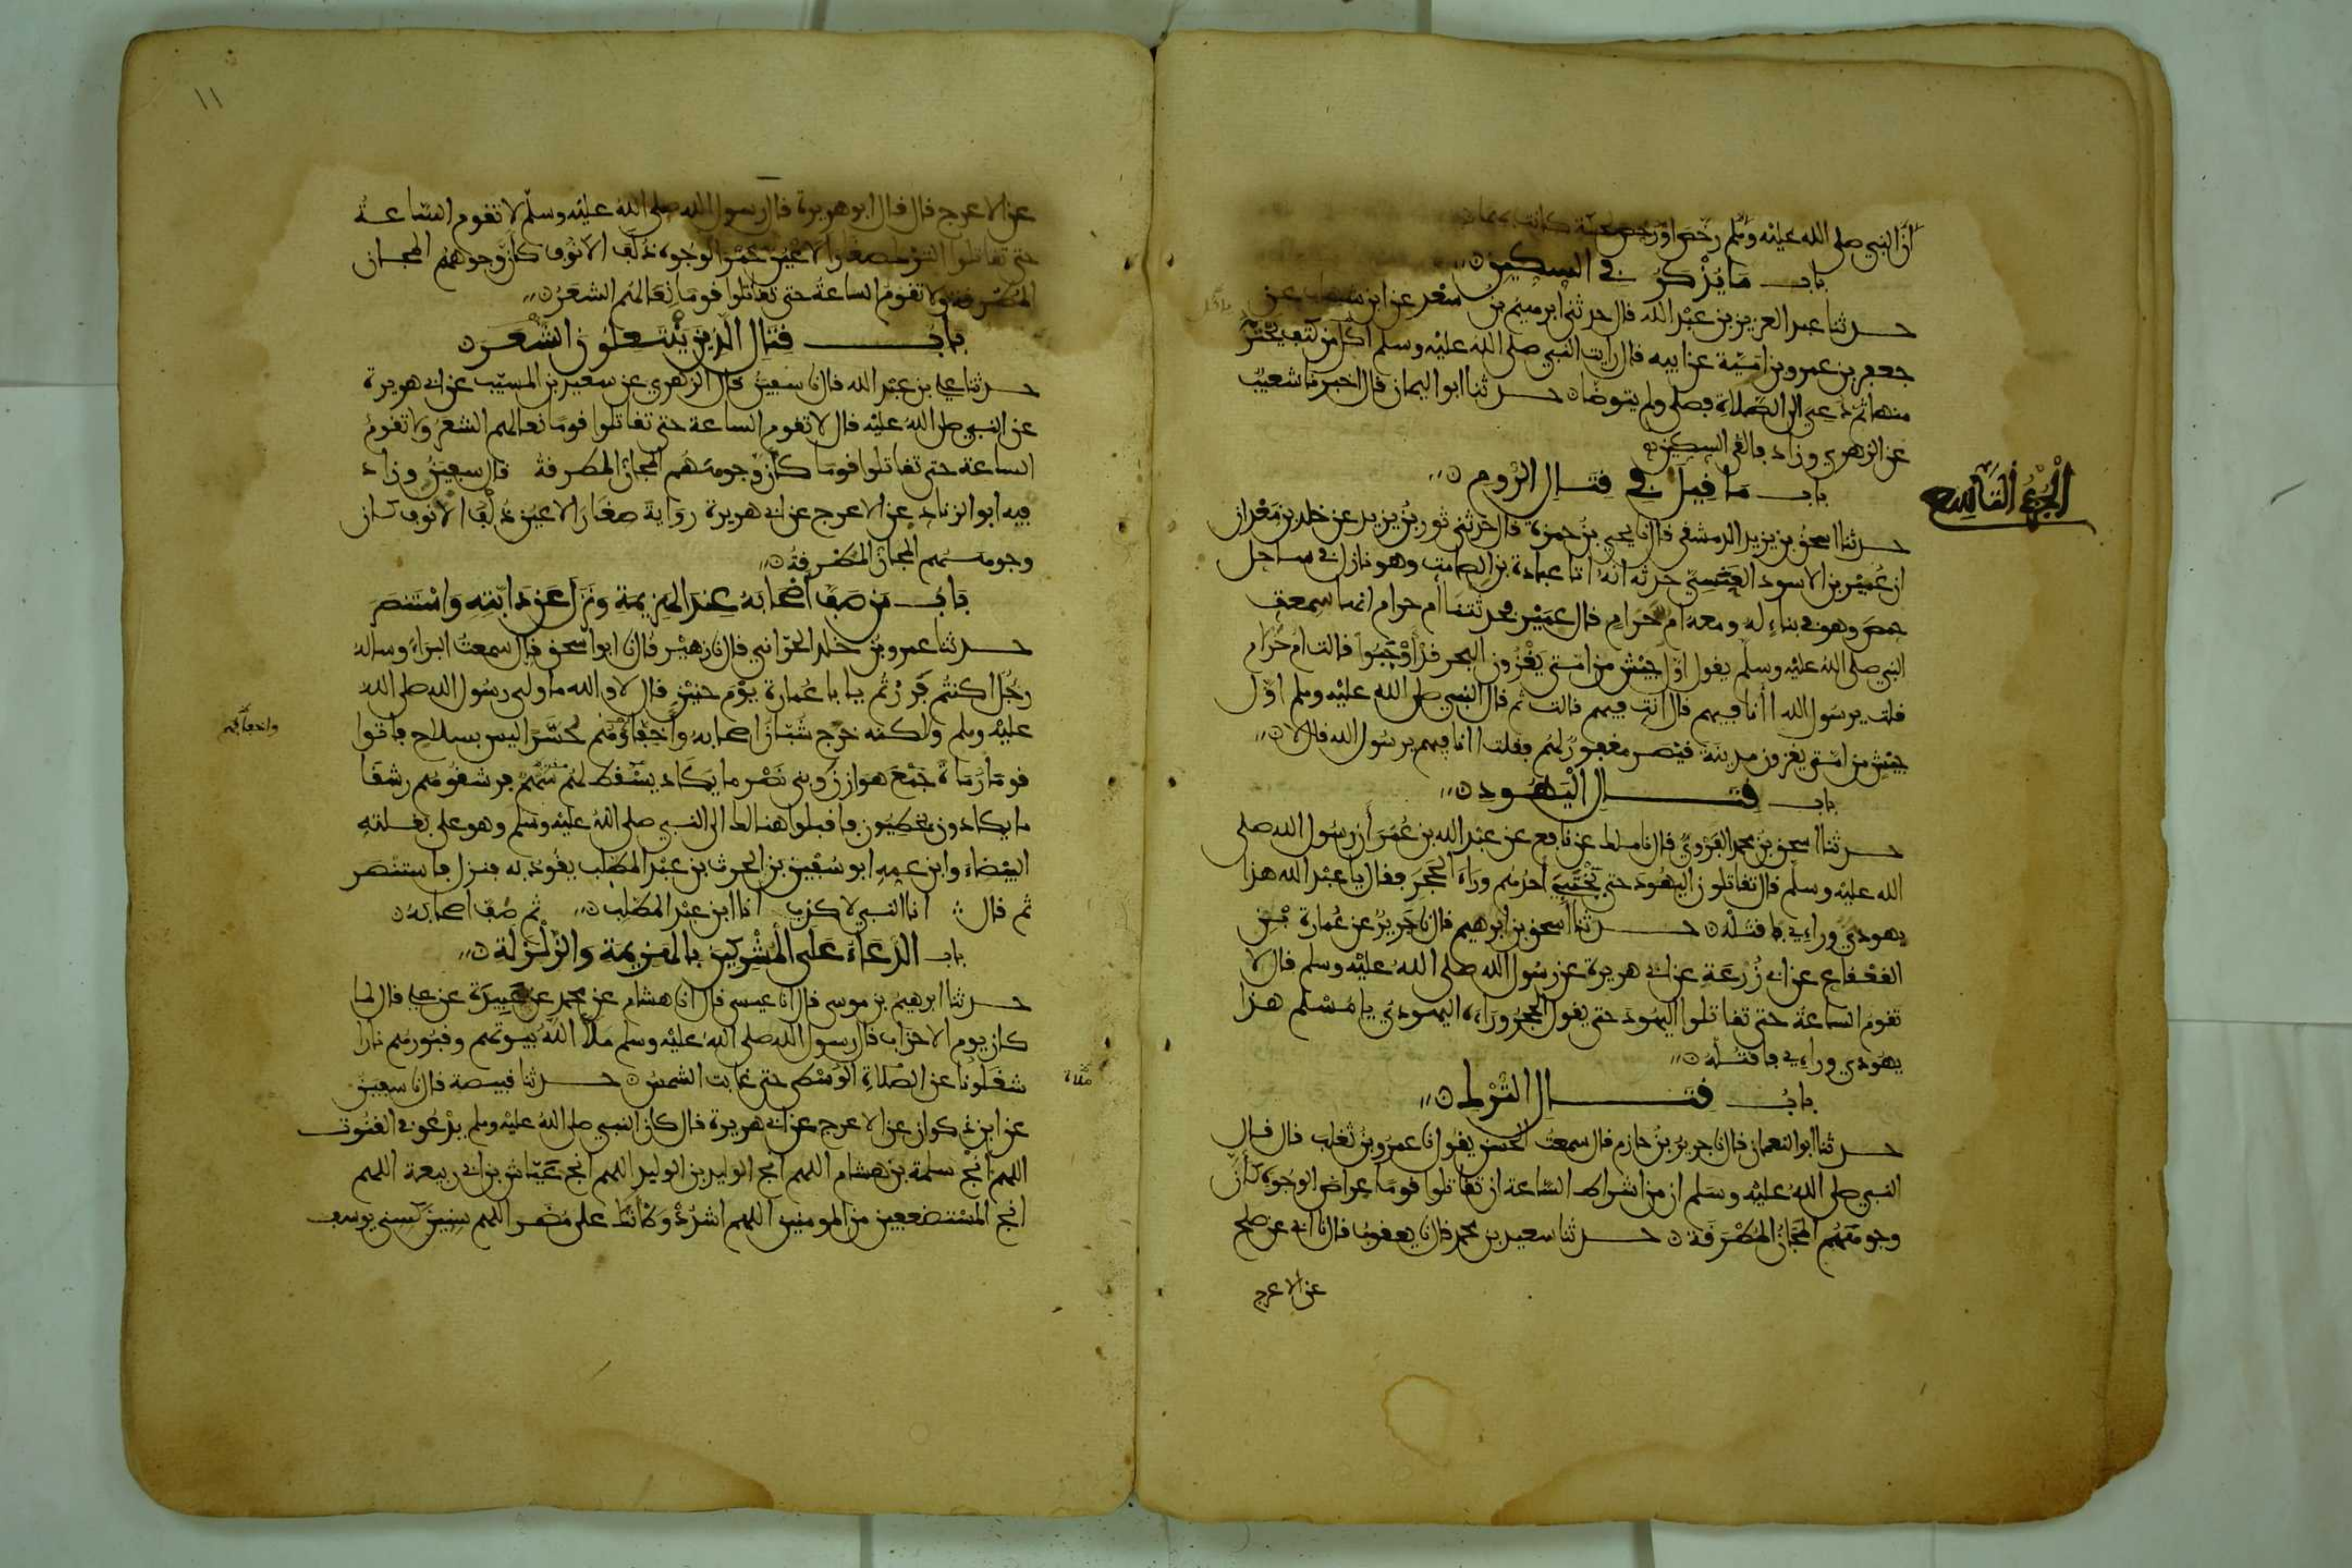 أن النبي صلى الله عليه وسلم رخص أو رخص لحكة كانت بهما
باب ما يذكر في السكين
حدثنا عبد العزيز بن عبد الله قال حدثني ابرهيم بن سعد عن ابن شهاب عن
جعفر بن عمرو بن امية عن ابيه قال رايت النبي صلى الله عليه وسلم اكل من كتف يحتز
منها ثم دعي الى الصلاة فصلى ولم يتوضا حدثنا ابو اليمان قال اخبرنا شعيب
عن الزهري وزاد فالقى السكين
الجزء التاسع
باب ما قيل في قتال الروم
حدثنا اسحق بن يزيد الدمشقي قال نا يحيى بن حمزة قال حدثني ثور بن يزيد عن خلد بن معدان
ان عمير بن الاسود العنسي حدثه انه اتا عبادة بن الصامت وهو نازل في ساحل
حمص وهو في بناء له ومعه ام حرام قال عمير فحدثتنا أم حرام انها سمعت
النبي صلى الله عليه وسلم يقول اول جيش من امتي يغزون البحر قد أوجبوا قالت ام حرام
قلت يرسول الله اأنا فيهم قال أنت فيهم قالت ثم قال النبي صلى الله عليه وسلم اول
جيش من امتي يغزون مدينة قيصر مغفور لهم فقلت اانا فيهم يرسول الله قال لا
باب قتال اليهود
حدثنا اسحق بن محمد الفروي قال نا ملك عن نافع عن عبد الله بن عمر أن رسول الله صلى
الله عليه وسلم قال تقاتلون اليهود حتى يختبي أحدهم وراء الحجر فيقال يا عبد الله هذا
يهودي وراءي فاقتله حدثنا اسحق بن ابرهيم قال نا جرير عن عمارة بن
القعقاع عن ابي زرعة عن ابي هريرة عن رسول الله صلى الله عليه وسلم قال لا
تقوم الساعة حتى تقاتلوا اليهود حتى يقول الحجر وراءه اليهودي يا مسلم هذا
يهودي وراءي فاقتله
باب قتال الترك
حدثنا ابو النعمان قال نا جرير بن حازم قال سمعت الحسن يقول نا عمرو بن تغلب قال قال
النبي صلى الله عليه وسلم ان من اشراط الساعة ان تقاتلوا قوما عراض الوجوه كأن
وجوههم المجان المطرقة حدثنا سعيد بن محمد قال نا يعقوب قال نا ابي عن صلح
عن الاعرج
١١
عن الاعرج قال قال ابو هريرة قال رسول الله صلى الله عليه وسلم لا تقوم الساعة
حتى تقاتلوا الترك صغار الاعين حمر الوجوه ذلف الأنوف كأن وجوههم المجان
المطرقة ولا تقوم الساعة حتى تقاتلوا قوما نعالهم الشعر
باب قتال الذين ينتعلون الشعر
حدثنا علي بن عبد الله قال نا سفين قال الزهري عن سعيد بن المسيب عن ابي هريرة
عن النبي صلى الله عليه قال لا تقوم الساعة حتى تقاتلوا قوما نعالهم الشعر ولا تقوم
الساعة حتى تقاتلوا قوما كأن وجوههم المجان المطرقة قال سفين وزاد
فيه ابو الزناد عن الاعرج عن ابي هريرة رواية صغار الاعين ذلف الأنوف كان
وجوههم المجان المطرقة
باب من صف أصحابه عند الهزيمة ونزل عن دابته واستنصر
حدثنا عمرو بن خلد الحراني قال نا زهير قال نا ابو اسحق قال سمعت البراء وساله
رجل اكنتم فررتم يا با عمارة يوم حنين قال لا والله ما ولى رسول الله صلى الله
عليه وسلم ولكنه خرج شبان اصحابه وأخفاؤهم حسرا ليس بسلاح فاتوا
واخفافهم
قوما رماة جمع هوازن وبني نصر ما يكاد يسقط لهم سهم فرشقوهم رشقا
ما يكادون يخطيون فاقبلوا هنالك الى النبي صلى الله عليه وسلم وهو على بغلته
البيضاء وابن عمه ابو سفين بن الحرث بن عبد المطلب يقود به فنزل فاستنصر
ثم قال انا النبي لا كذب انا ابن عبد المطلب ثم صف اصحابه
باب الدعاء على المشركين بالهزيمة والزلزلة
حدثنا ابرهيم بن موسى قال انا عيسى قال نا هشام عن محمد عن عبيدة عن علي قال لما
كان يوم الاحزاب قال رسول الله صلى الله عليه وسلم ملأ الله بيوتهم وقبورهم نارا
شغلونا عن الصلاة الوسطى حتى غابت الشمس حدثنا قبيصة قال نا سفين
عن ابن ذكوان عن الاعرج عن ابي هريرة قال كان النبي صلى الله عليه وسلم يدعو في القنوت
اللهم أنج سلمة بن هشام اللهم انج الوليد بن الوليد اللهم انج عياش بن ابي ربيعة اللهم
انج المستضعفين من المومنين اللهم اشدد وطأتك على مضر اللهم سنين كسني يوسف